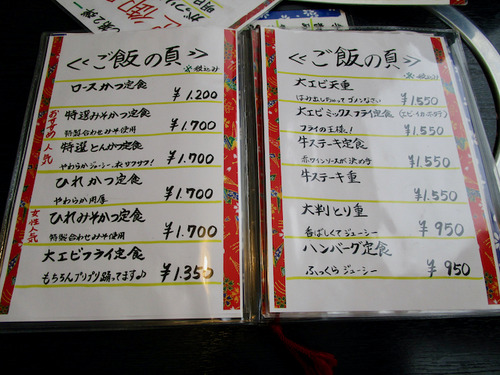 ≪ご飯の頁≫
※税込み
ロースかつ定食
¥1.200
おすすめ 人気
特選みそかつ定食
特製合わせみそ使用 ¥1.700
特選とんかつ定食
やわらかジューシー、衣サクサク! ¥1.700
ひれかつ定食
やわらか肉厚 ¥1.700
女性人気
ひれみそかつ定食
特製合わせみそ使用 ¥1.700
大エビフライ定食
もちろんプリプリ踊ってます♪ ¥1.350
≪ご飯の頁≫
※税込み
大エビ天重
はみ出しちゃってゴメンなさい ¥1.550
大エビミックスフライ定食(エビ・イカ・ホタテ)
フライの王様! ¥1.550
牛ステーキ定食
赤ワインソースが決め手 ¥1.550
牛ステーキ重
¥1.550
大判とり重
香ばしくてジューシー ¥950
ハンバーグ定食
ふっくらジューシー ¥950